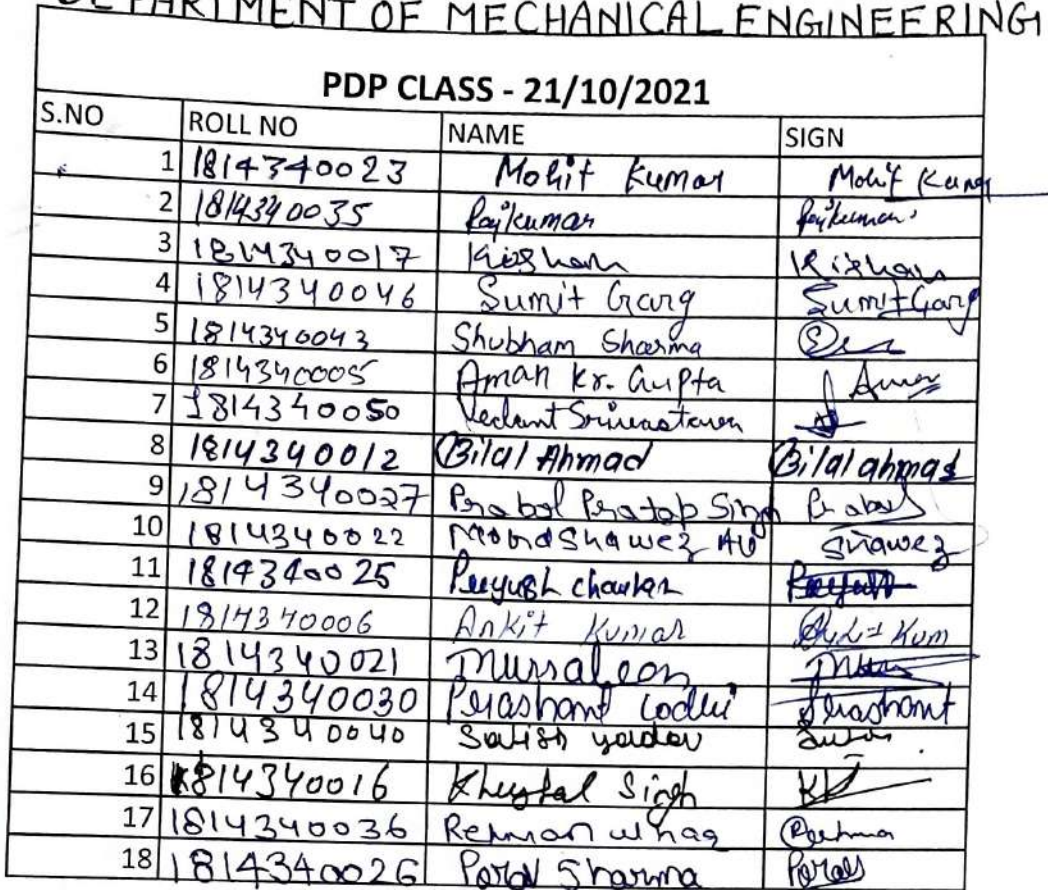 DEPARTMENT OF MECHANICAL ENGINEERING
PDP CLASS - 21/10/2021
S.NO ROLL NO NAME SIGN
1 1814340023 Mohit Kumar Mohit Kumar
2 1814340035 Rajkumar Rajkumar
3 1814340017 Kishan Kishan
4 1814340046 Sumit Garg Sumit Garg
5 1814340043 Shubham Sharma
6 1814340005 Aman Kr. Gupta Aman
7 1814340050 Vedant Srivastava
8 1814340012 Bilal Ahmad Bilal ahmad
9 1814340027 Prabal Pratap Singh Prabal
10 1814340022 Mohd Shawez Ali Shawez
11 1814340025 Peeyush chauhan
12 1814340006 Ankit Kumar Ankit Kum
13 1814340021 Mursaleen
14 1814340030 Prashant Lodhi Prashant
15 1814340040 Satish yadav
16 1814340016 Khushal Singh
17 1814340036 Rehman ul haq Rehman
18 1814340026 Paras Sharma Paras